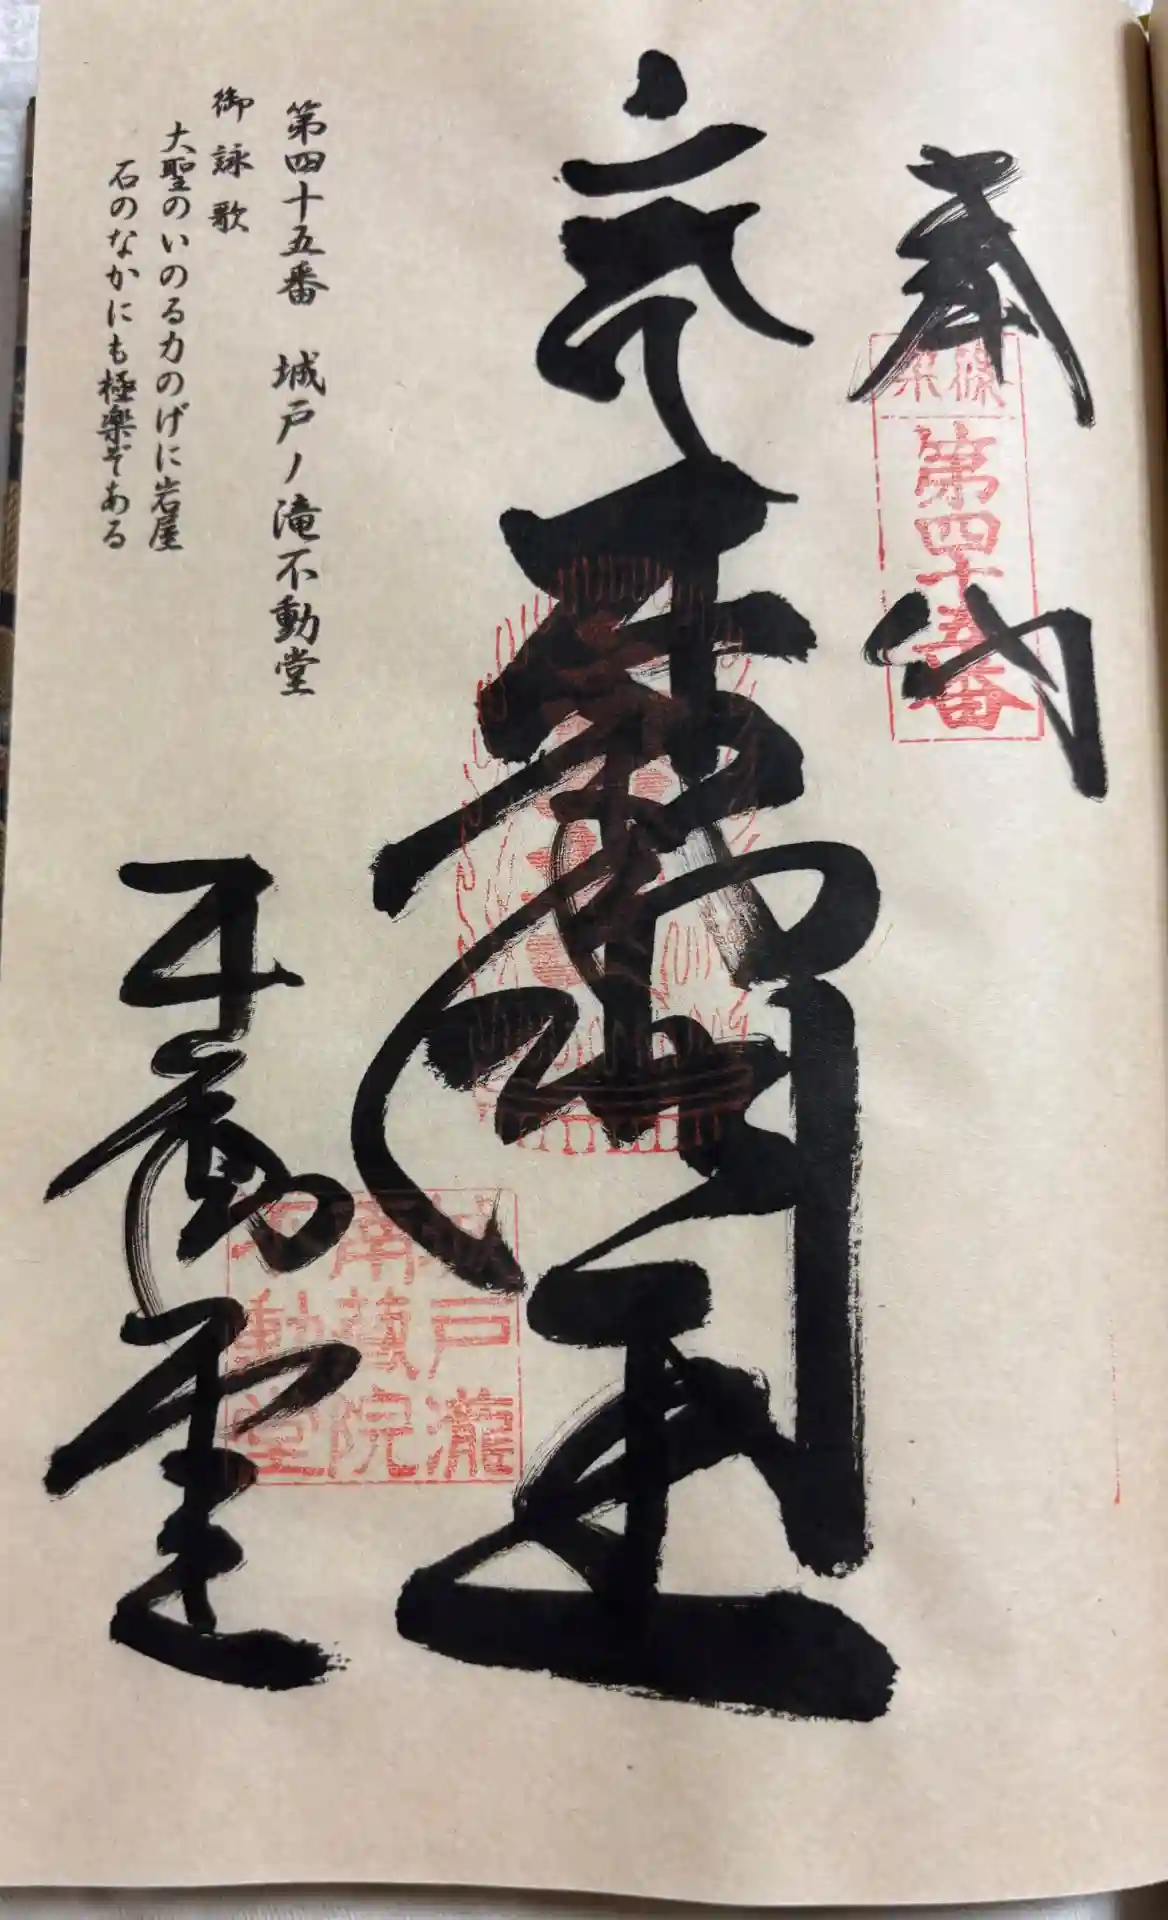 奉
篠栗
第四十五番
不動明王
第四十五番 城戸ノ滝不動堂
御詠歌
大聖のいのる力のげに岩屋
石のなかにも極楽ぞある
不動堂
城戸瀧
南蔵院
不動堂